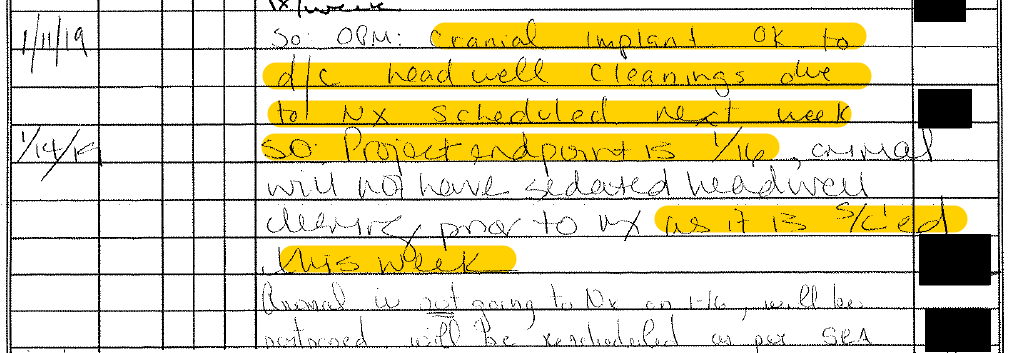 1x/week
1/11/19 SO: OPM: Cranial Implant OK to
d/c headwell cleanings due
to NX scheduled next week
1/14/19 SO: Project endpoint is 1/16, animal
will not have sedated headwell
cleaning prior to nx as it is s/c'ed
this week
Animal is not going to Nx on 1/16, will be
postponed will be rescheduled as per